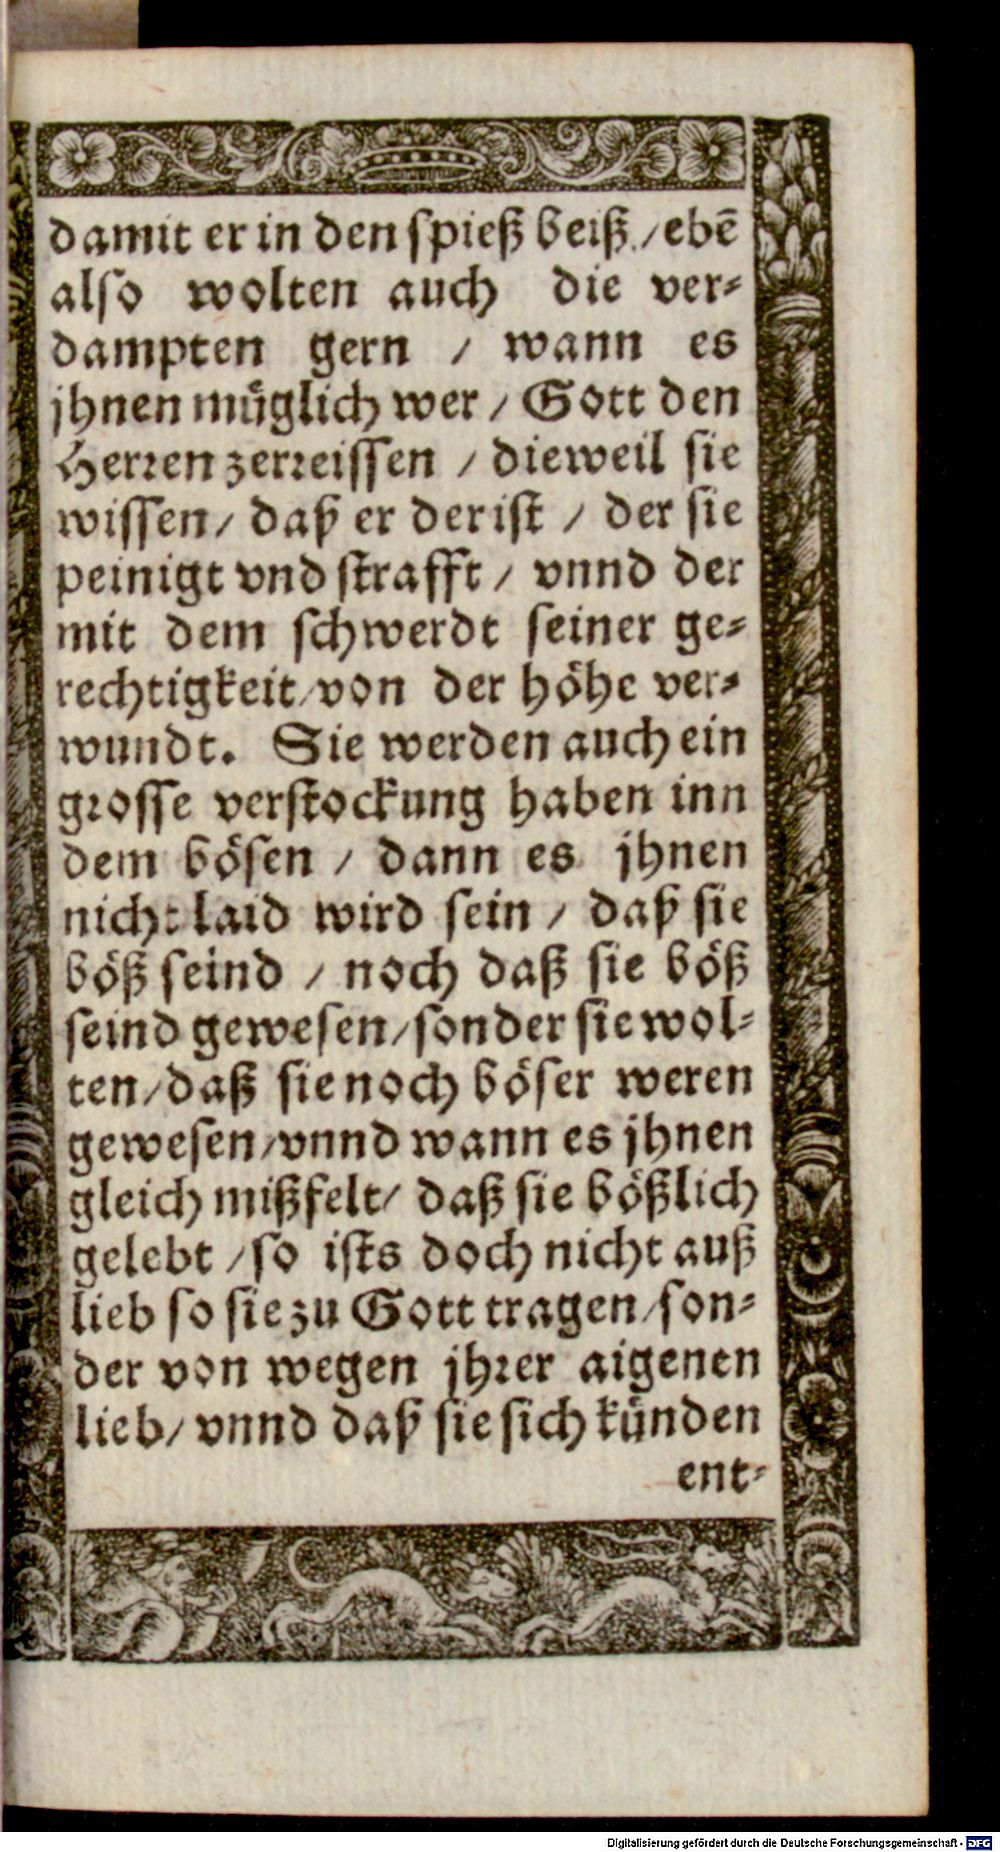 damit er in den spieß beiß / ebē
also wolten auch die ver⸗
dampten gern / wann es
jhnen müglich wer / Gott den
Herren zerreissen / dieweil sie
wissen / daß er der ist / der sie
peinigt vnd strafft / vnnd der
mit dem schwerdt seiner ge⸗
rechtigkeit / von der höhe ver⸗
wundt. Sie werden auch ein
grosse verstockung haben inn
dem bösen / dann es jhnen
nicht laid wird sein / daß sie
böß seind / noch daß sie böß
seind gewesen / sonder sie wol⸗
ten / daß sie noch böser weren
gewesen / vnnd wann es jhnen
gleich mißfelt / daß sie bößlich
gelebt / so ists doch nicht auß
lieb so sie zu Gott tragen / son⸗
der von wegen jhrer aigenen
lieb / vnnd daß sie sich künden
ent⸗
Digitalisierung gefördert durch die Deutsche Forschungsgemeinschaft - DFG